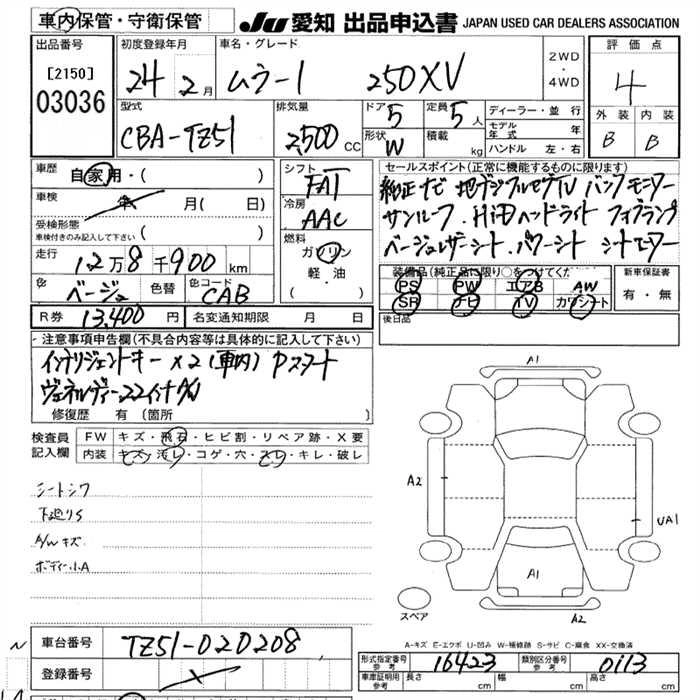 車内保管・守衛保管
JU 愛知 出品申込書 JAPAN USED CAR DEALERS ASSOCIATION
出品番号
[2150]
03036
初度登録年月
24 2月
車名・グレード
ムラーノ 250XV
2WD
・
4WD
評価点
4
外装 内装
B B
型式
CBA-TZ51
排気量
2,500 CC
ドア 5
形状 W
定員 5人
積載 kg
ディーラー・並行
モデル年式 年
ハンドル 左・右
車歴 自家用・( )
車検 年 月( 日)
受検形態
車検付きのみ記入して下さい ( )
走行 12万8千900km
色 ベージュ 色替 色コード CAB
シフト
FAT
冷房
AAC
燃料
ガソリン
軽・油
( )
セールスポイント(正常に機能するものに限ります)
純正ナビ 地デジフルセグTV バックモニター
サンルーフ・HiDヘッドライト フォグランプ
ベージュレザーシート・パワーシート シートヒーター
装備品(純正品に限り○をつけてください)
PS PW エアB AW
SR ナビ TV カワシート
新車保証書
有・無
R券 13,400円 名変通知期限 月 日
後日品
注意事項申告欄(不具合内容等は具体的に記入して下さい)
インテリジェントキー×2(車内) Pスタート
修復歴 有 [箇所 ]
検査員
記入欄
FW キズ・飛石・ヒビ割・リペア跡・X要
内装 キズ・汚レ・コゲ・穴・スレ・キレ・破レ
シートシワ
下廻りS
A/Wキズ
ボディー小A
A1
A2
UA1
A1
スペア
A2
A-キズ E-エクボ U-凹み W-補修跡 S-サビ C-腐食 XX-交換済
車台番号 TZ51-020208
登録番号
形式指定番号
参考
16423
類別区分番号
参考
0113
車庫証明用
参考
長さ cm 幅 cm 高さ cm